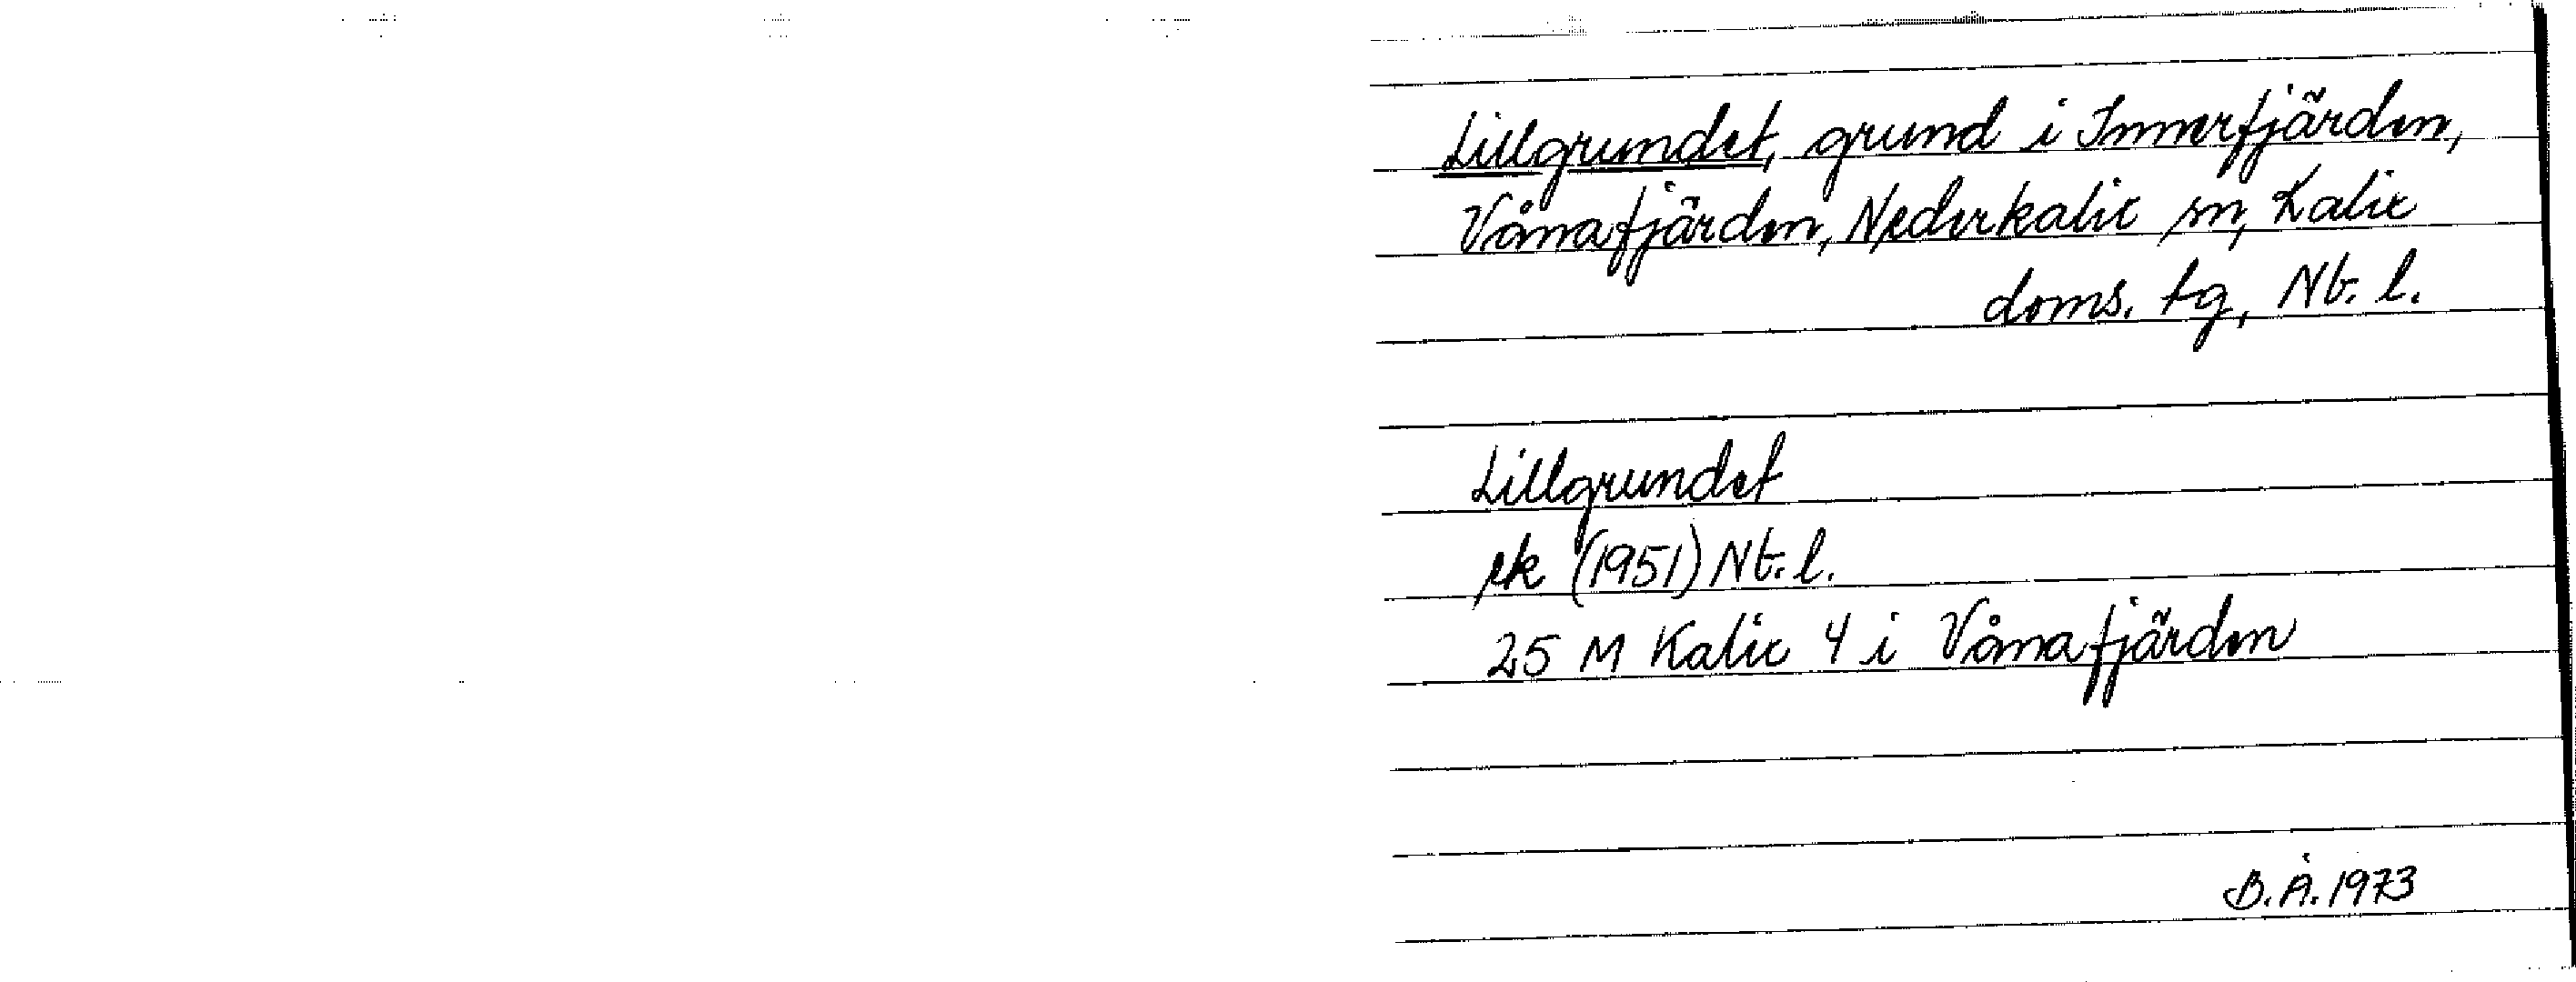 Lillgrundet, grund i Innerfjärden,
Vånafjärden, Nederkalix sn, Kalix
doms. tg, Nb. l.
Lillgrundet
ek (1951) Nb. l.
25 M Kalix 4 i Vånafjärden
B.Å. 1973